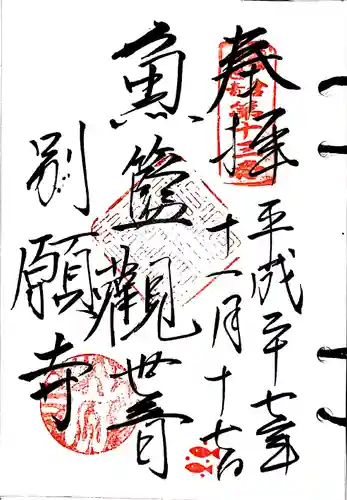 奉拝
平成二十七年
十一月十七日
魚籃觀世音
別願寺